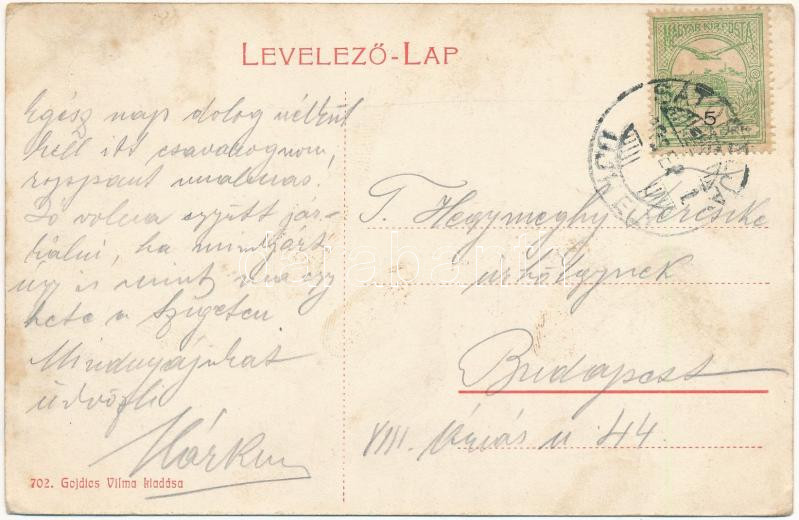 LEVELEZŐ-LAP
MAGYAR KIR. POSTA
5
Egész nap dolog nélkül
kell itt csavarognom,
roppant unalmas.
Jó volna együtt jár-
kálni, ha mindjárt
úgy is mint ma egy
hete a Szigeten
Mindnyájukat
üdvözli
T. Hegymeghy Tercsike
úrhölgynek
Budapest
VIII. Óriás u 44
702. Gojdics Vilma kiadása